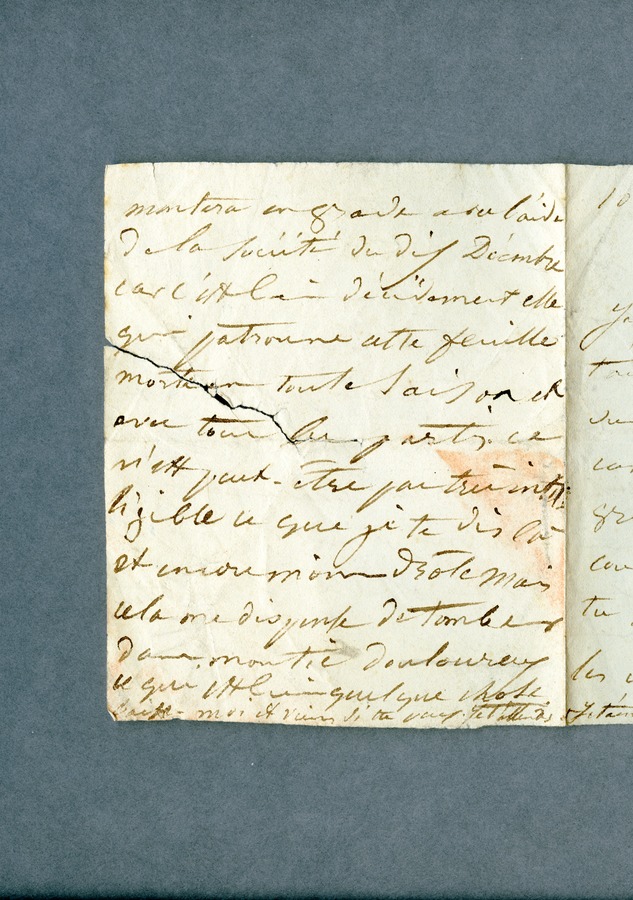 montera en grade avec l'aide
de la société du dix Décembre
car c'est bien décidement elle
qui patronne cette feuille
morte en toute saison et
avec tous les partis. ce
n'est peut-être pas très intel
ligible ce que je te dis là
et encore moins drôle mais
cela me dispense de tomber
dans mon tic douloureux
ce qui est bien quelque chose
moi et viens si tu veux
10
tu
les